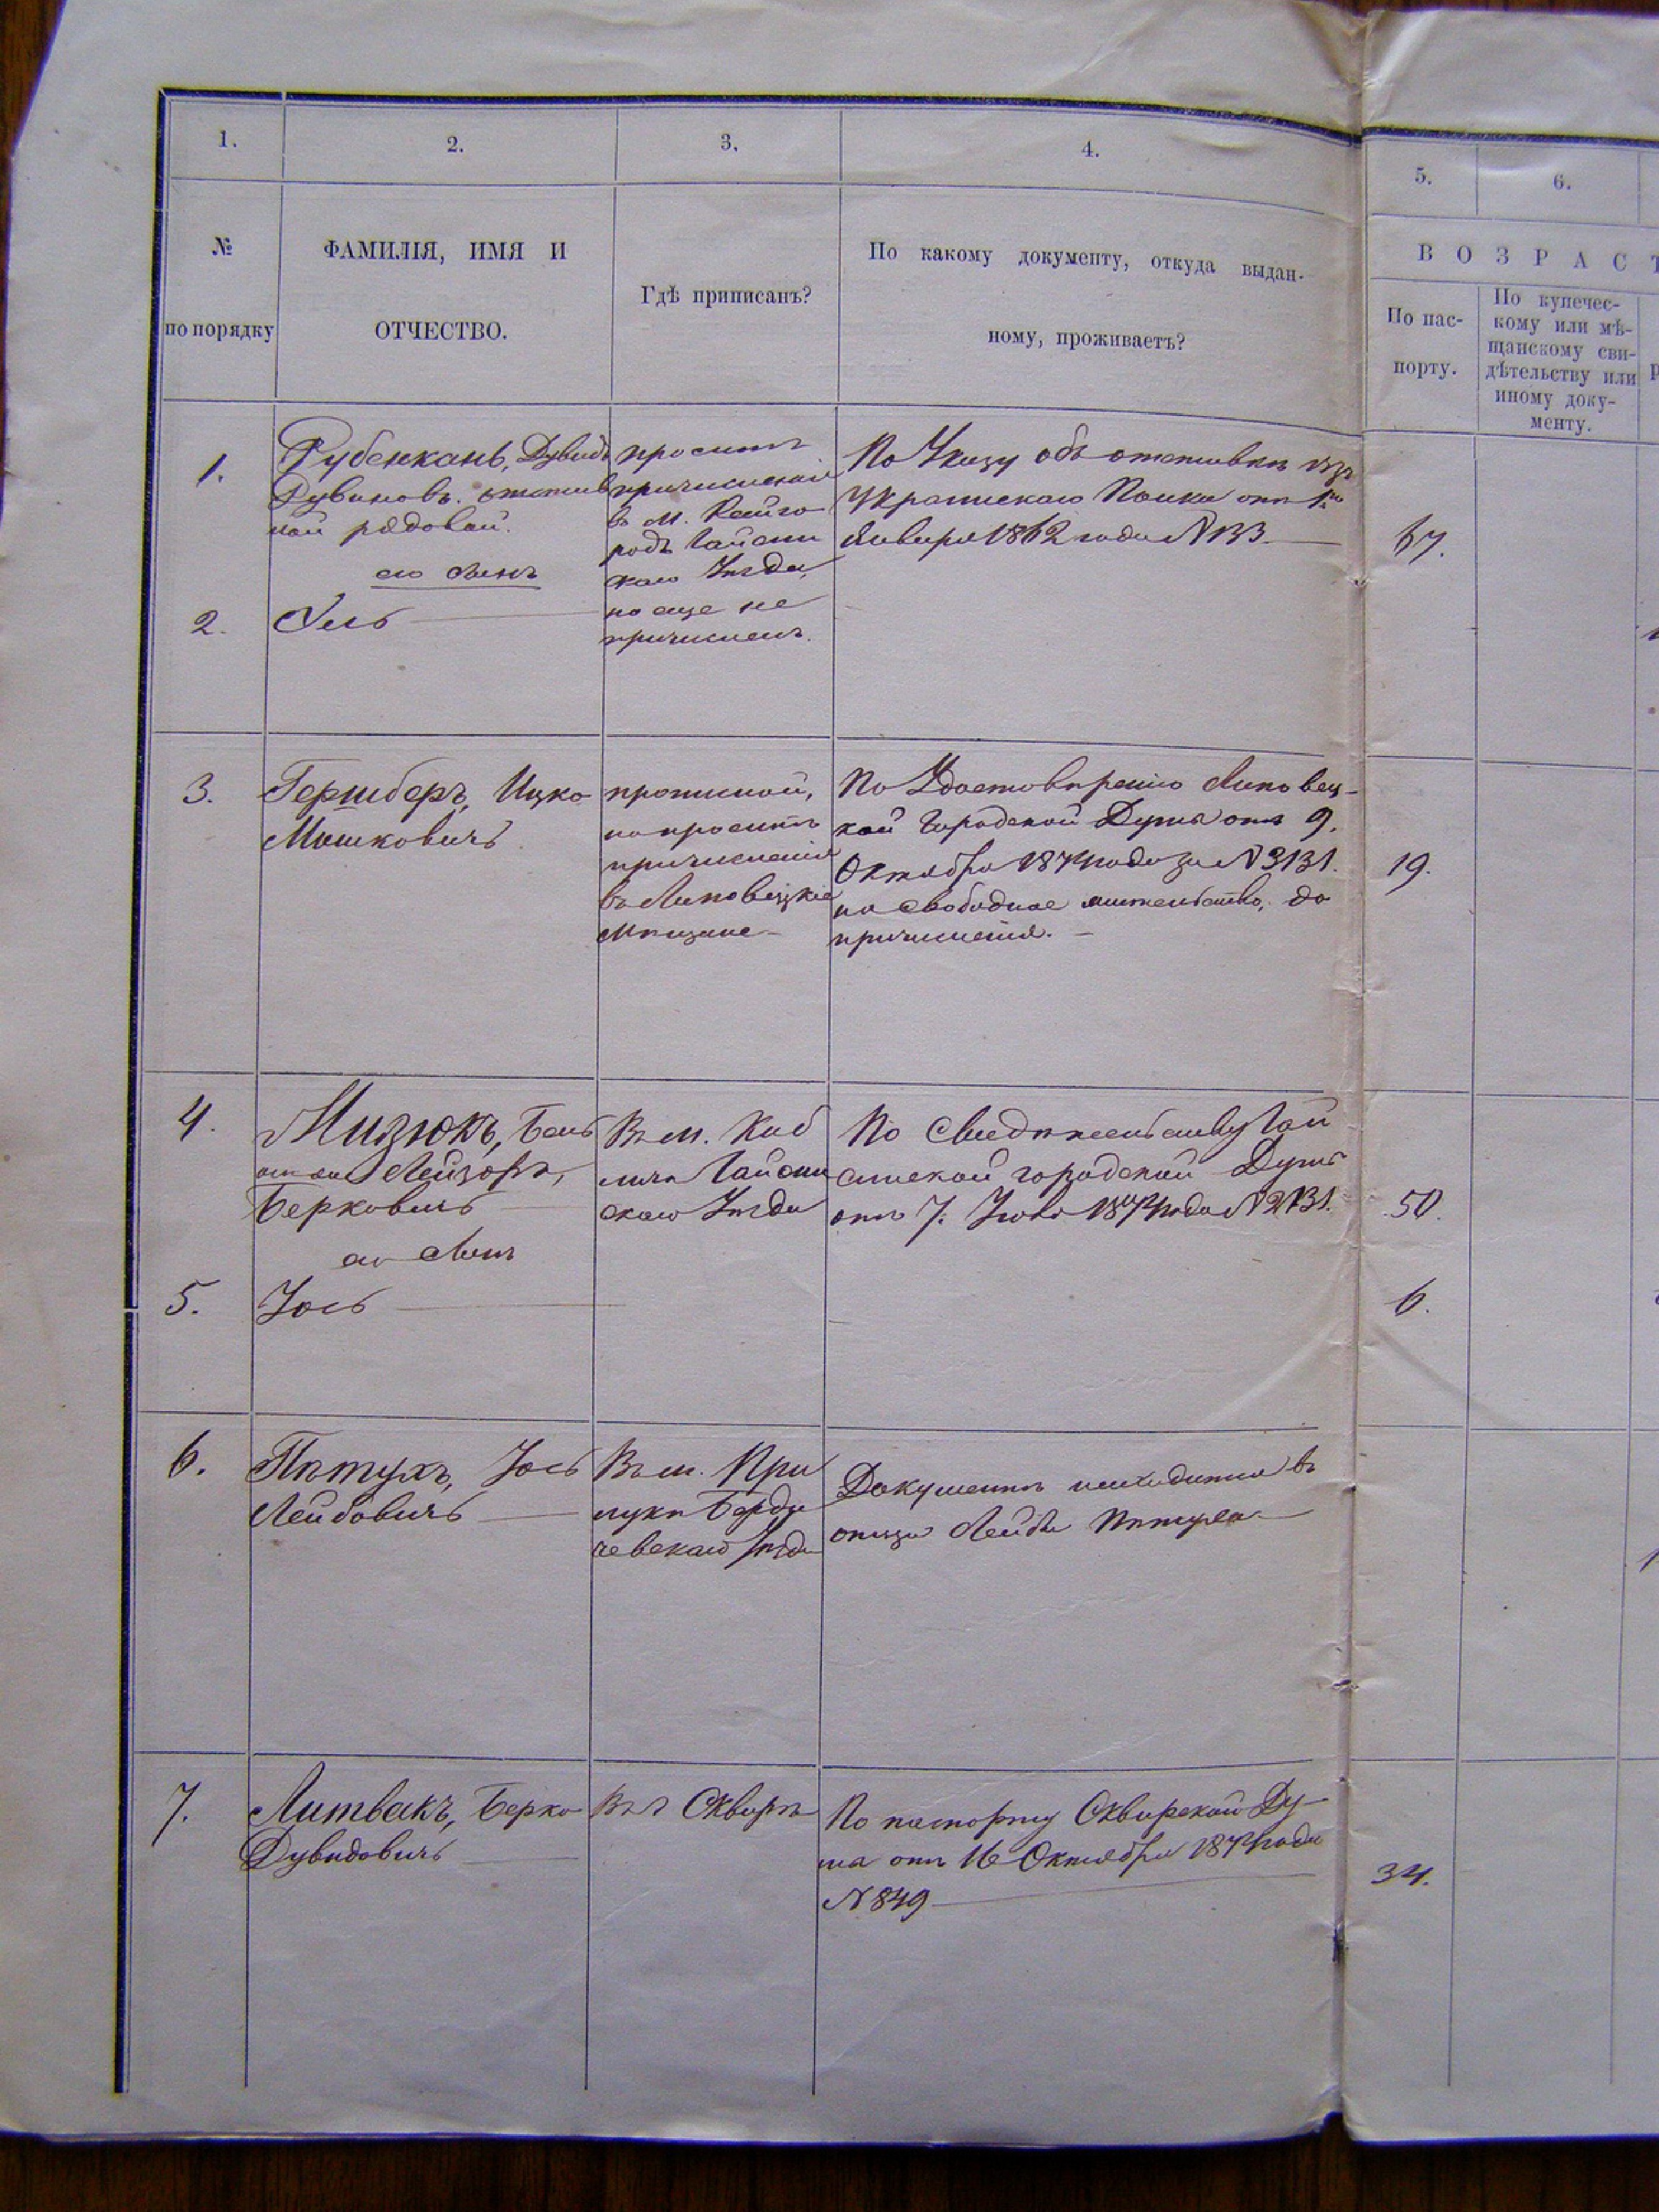 1.
2.
3.
4.
5.
6.
№
по порядку
ФАМИЛІЯ, ИМЯ И
ОТЧЕСТВО.
Гдѣ приписанъ?
По какому документу, откуда выдан-
ному, проживаетъ?
ВОЗРАСТ
По пас-
порту.
По купечес-
кому или мѣ-
щанскому сви-
дѣтельству или
иному доку-
менту.
1.
Рубенкань, Дувидъ
Рувиновъ. отстав
ной рядовой.
его сынъ
2.
проситъ
причисленія
в м. Райго
родъ Гайсин
скаго Уѣзда,
но еще не
причисленъ.
По Указу объ отставкѣ изъ
Украинскаго Полка отъ 1го
Января 1862 года №133
67.
3.
Гершберъ, Ицко
Мошковичъ
прописной,
но проситъ
причисленія
въ Липовецкіе
Мѣщане
По Удостовѣренію Липовец-
кой Городской Думы отъ 9.
Октября 1874 года за №3131.
на свободное жительство, до
причисленія.
19.
4.
Мизюкъ,
Лейзоръ,
Берковичъ
его сынъ
Въ м. Куб
личѣ Гайсин
скаго Уѣзда
По Свидѣтельству Гай
синской городской Думы
отъ 7. 1874 года №2131.
50.
5.
Іось
6.
6.
Пѣтухъ, Іось
Лейбовичъ
Въ м. При
лукѣ Берди
чевскаго Уѣзда
Документъ находится въ
отца Лейбы Пѣтуха
7.
Литвакъ, Берко
Дувидовичъ
Въ г Сквирѣ
По паспорту Сквирской Ду-
мы отъ 16 Октября 1874 года
№849
34.